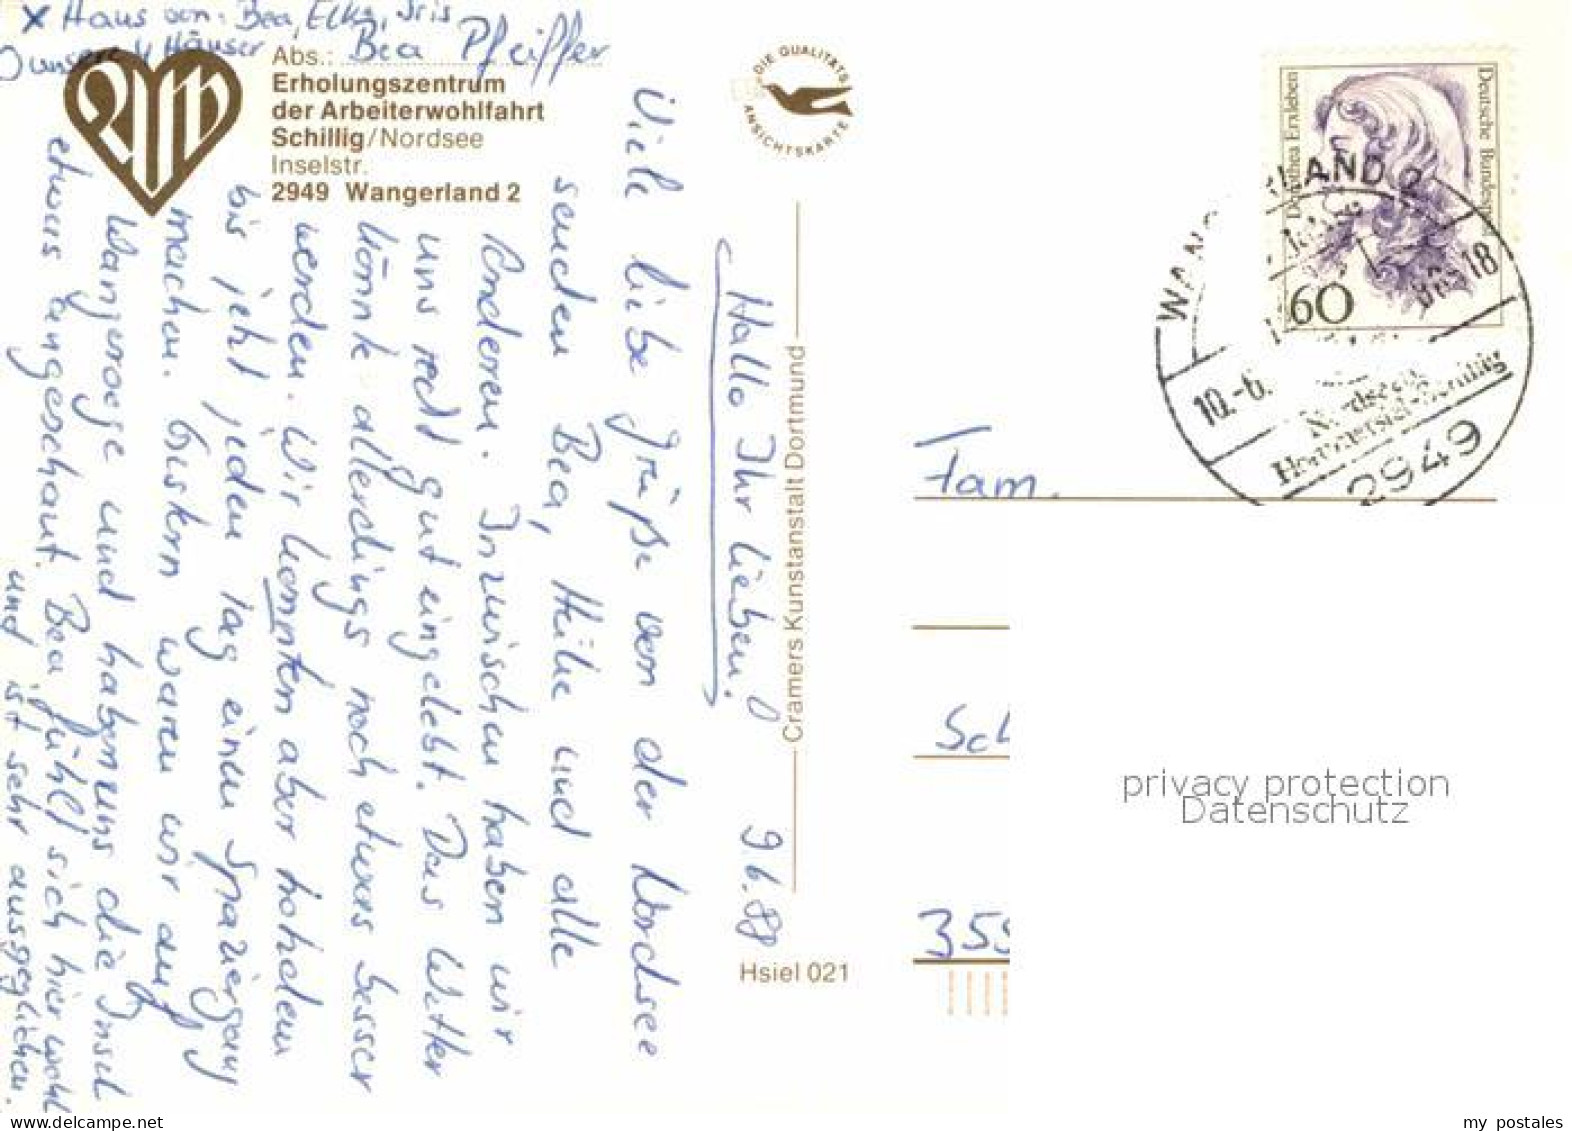 X Haus von: Bea, Elke, Iris
O unsere 4 Häuser
Abs.: Bea Pfeiffer
Erholungszentrum
der Arbeiterwohlfahrt
Schillig/Nordsee
Inselstr.
2949 Wangerland 2
DIE QUALITÄTS
ANSICHTSKARTE
Hallo Ihr Lieben! 9.6.88
Viele liebe Grüße von der Nordsee
senden Bea, Heike und alle
Anderen. Inzwischen haben wir
uns recht gut eingelebt. Das Wetter
könnte allerdings noch etwas besser
werden. Wir konnten aber trotzdem
bis jetzt jeden Tag einen Spaziergang
machen. Gestern waren wir auf
Wangerooge und haben uns die Insel
etwas angeschaut. Bea fühlt sich hier wohl
und ist sehr ausgeglichen.
Cramers Kunstanstalt Dortmund
Hsiel 021
Deutsche Bundes
Dorothea Erxleben
60
WANG RLAND 2
10.-6. 88-18
2949
Fam.
Sch
355
privacy protection
Datenschutz
my postales